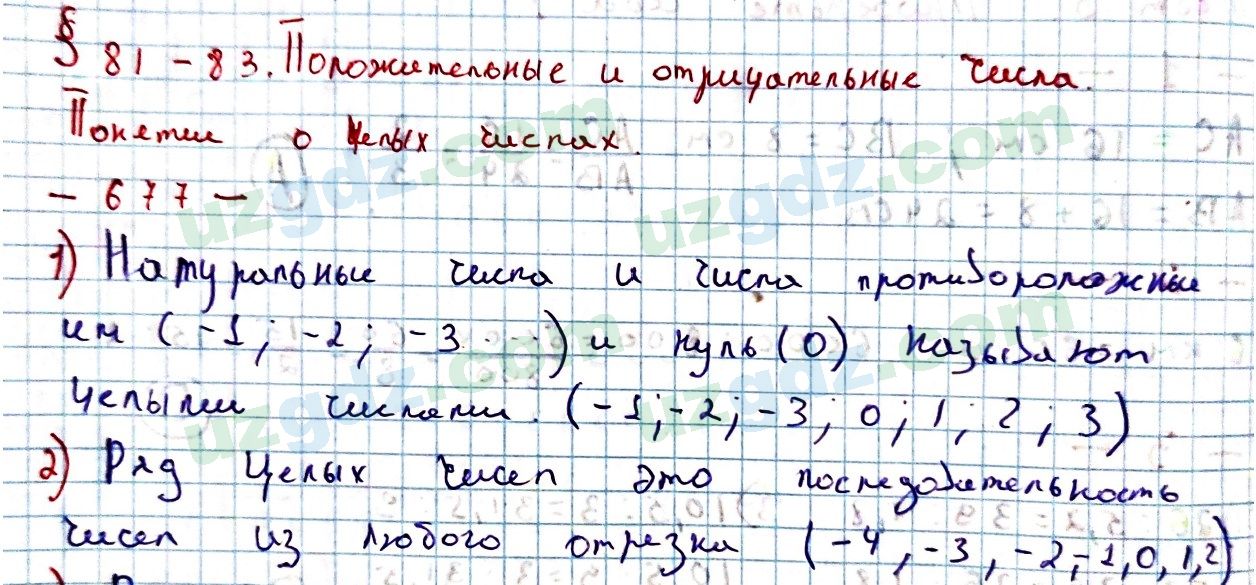 § 81 - 83. Положительные и отрицательные числа.
Понятии о целых числах.
- 677 -
1) Натуральные числа и числа противороложные
им (-1; -2; -3 ...) и нуль (0) называют
целыми числами. (-1; -2; -3; 0; 1; 2; 3)
2) Ряд целых чисел это последовательность
чисел из любого отрезка (-4, -3, -2, -1, 0, 1, 2)
uzgdz.com
uzgdz.com
uzgdz.com
uzgdz.com